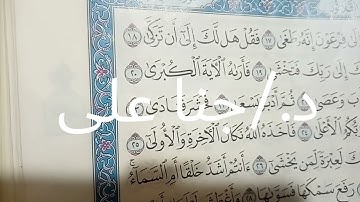 فِرْعَوْنَ إِنَّهُ طَغَىٰ ١٧ فَقُلْ هَل لَّكَ إِلَىٰ أَن تَزَكَّىٰ ١٨
إِلَىٰ رَبِّكَ فَتَخْشَىٰ ١٩ فَأَرَىٰهُ الْآيَةَ الْكُبْرَىٰ ٢٠
وَعَصَىٰ ٢١ ثُمَّ أَدْبَرَ يَسْعَىٰ ٢٢ فَحَشَرَ فَنَادَىٰ ٢٣
د./حنا على
الْأَعْلَىٰ ٢٤ فَأَخَذَهُ اللَّهُ نَكَالَ الْآخِرَةِ وَالْأُولَىٰ ٢٥
لَعِبْرَةً لِّمَن يَخْشَىٰ ٢٦ ءَأَنتُمْ أَشَدُّ خَلْقًا أَمِ السَّمَاءُ
سَمْكَهَا فَسَوَّىٰهَا ٢٨ وَأَغْطَشَ